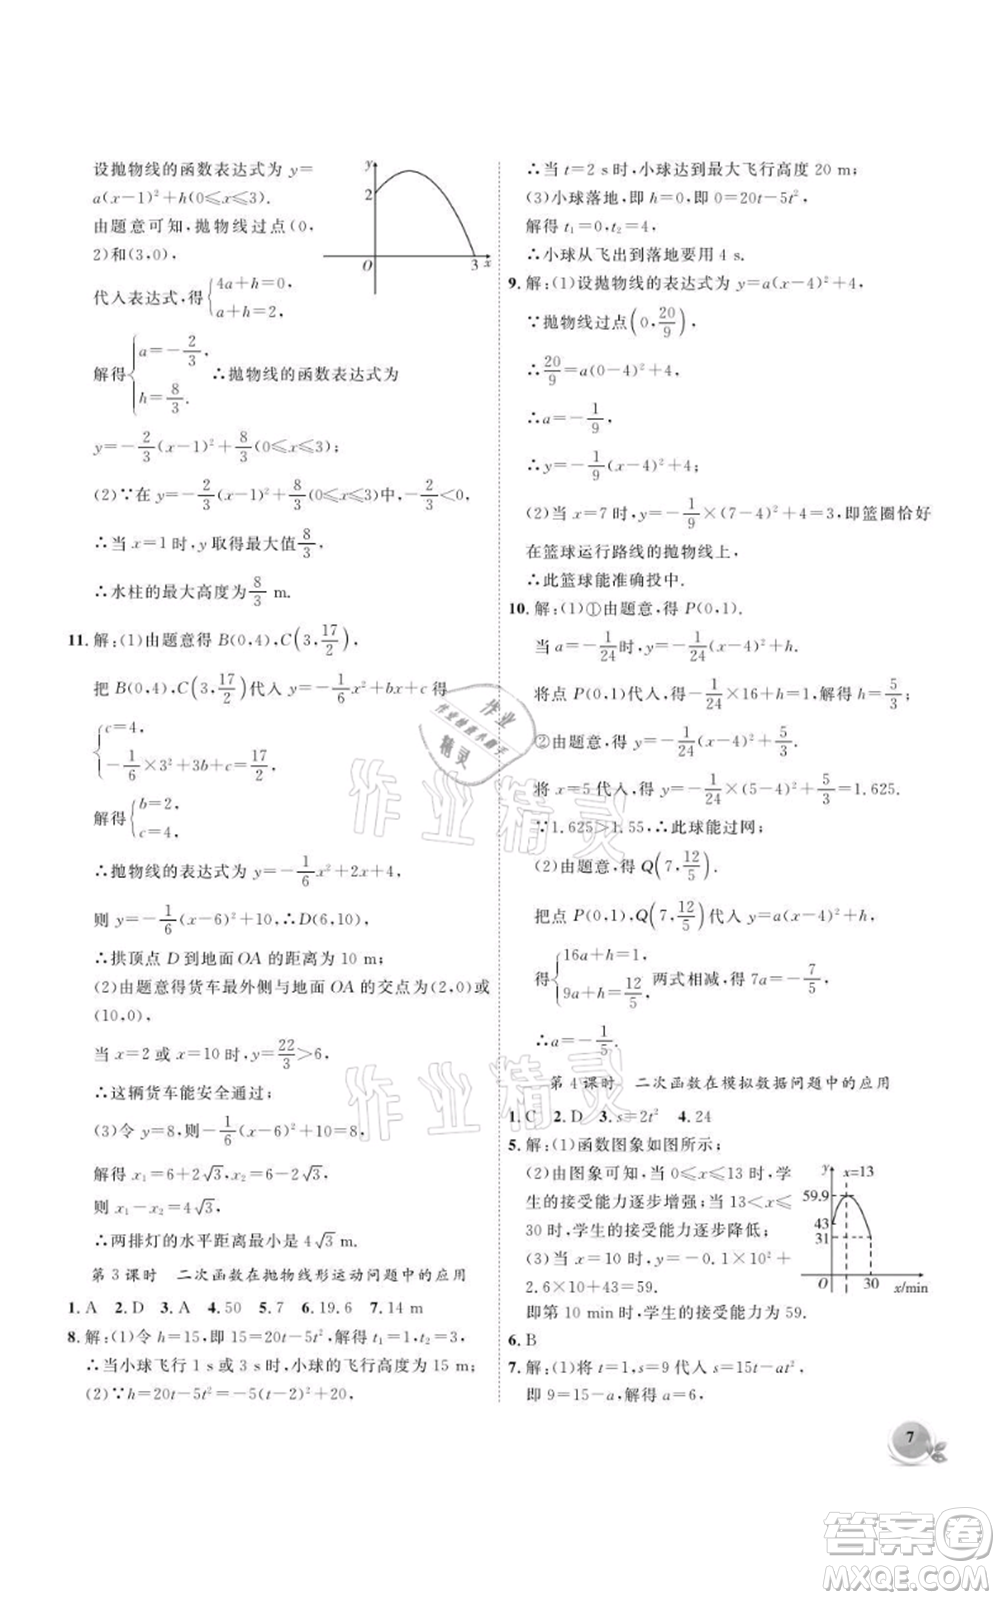 设抛物线的函数表达式为 y=
a(x-1)²+h(0≤x≤3).
由题意可知,抛物线过点(0,
2)和(3,0),
代入表达式,得{4a+h=0,
a+h=2,
解得{a=-2/3,
h=8/3.
∴抛物线的函数表达式为
y=-2/3(x-1)²+8/3(0≤x≤3);
(2)∵在 y=-2/3(x-1)²+8/3(0≤x≤3)中,-2/3<0,
∴当 x=1 时,y 取得最大值8/3,
∴水柱的最大高度为8/3 m.
y
2
O
3
x
11. 解:(1)由题意得 B(0,4),C(3,17/2),
把 B(0,4),C(3,17/2)代入 y=-1/6x²+bx+c 得
{c=4,
-1/6×3²+3b+c=17/2,
解得{b=2,
c=4.
∴抛物线的表达式为 y=-1/6x²+2x+4,
则 y=-1/6(x-6)²+10,∴D(6,10),
∴拱顶点 D 到地面 OA 的距离为 10 m;
(2)由题意得货车最外侧与地面 OA 的交点为(2,0)或
(10,0),
当 x=2 或 x=10 时,y=22/3>6,
∴这辆货车能安全通过;
(3)令 y=8,则-1/6(x-6)²+10=8,
解得 x₁=6+2√3,x₂=6-2√3,
则 x₁-x₂=4√3,
∴两排灯的水平距离最小是 4√3 m.
第 3 课时 二次函数在抛物线形运动问题中的应用
1. A 2. D 3. A 4. 50 5. 7 6. 19.6 7. 14 m
8. 解:(1)令 h=15,即 15=20t-5t²,解得 t₁=1,t₂=3,
∴当小球飞行 1 s 或 3 s 时,小球的飞行高度为 15 m;
(2)∵h=20t-5t²=-5(t-2)²+20,
∴当 t=2 s 时,小球达到最大飞行高度 20 m;
(3)小球落地,即 h=0,即 0=20t-5t²,
解得 t₁=0,t₂=4,
∴小球从飞出到落地要用 4 s.
9. 解:(1)设抛物线的表达式为 y=a(x-4)²+4,
∵抛物线过点(0,20/9),
∴20/9=a(0-4)²+4,
∴a=-1/9,
∴y=-1/9(x-4)²+4;
(2)当 x=7 时,y=-1/9×(7-4)²+4=3,即篮圈恰好
在篮球运行路线的抛物线上,
∴此篮球能准确投中.
10. 解:(1)①由题意,得 P(0,1).
当 a=-1/24时,y=-1/24(x-4)²+h,
将点 P(0,1)代入,得-1/24×16+h=1,解得 h=5/3;
②由题意,得 y=-1/24(x-4)²+5/3,
将 x=5 代入,得 y=-1/24×(5-4)²+5/3=1.625.
∵1.625>1.55,∴此球能过网;
(2)由题意,得 Q(7,12/5).
把点 P(0,1),Q(7,12/5)代入 y=a(x-4)²+h,
得{16a+h=1,
9a+h=12/5,
两式相减,得 7a=-7/5,
∴a=-1/5.
第 4 课时 二次函数在模拟数据问题中的应用
1. C 2. D 3. s=2t² 4. 24
5. 解:(1)函数图象如图所示;
(2)由图象可知,当 0≤x≤13 时,学
生的接受能力逐步增强;当 13<x≤
30 时,学生的接受能力逐步降低;
(3)当 x=10 时,y=-0.1×10²+
2.6×10+43=59.
即第 10 min 时,学生的接受能力为 59.
y
x=13
59.9
43
31
O
30
x/min
6. B
7. 解:(1)将 t=1,s=9 代入 s=15t-at²,
即 9=15-a,解得 a=6,
7
作业精灵
作业精灵
作业
作业快速小助手
精灵
答案圈
MXQE.COM